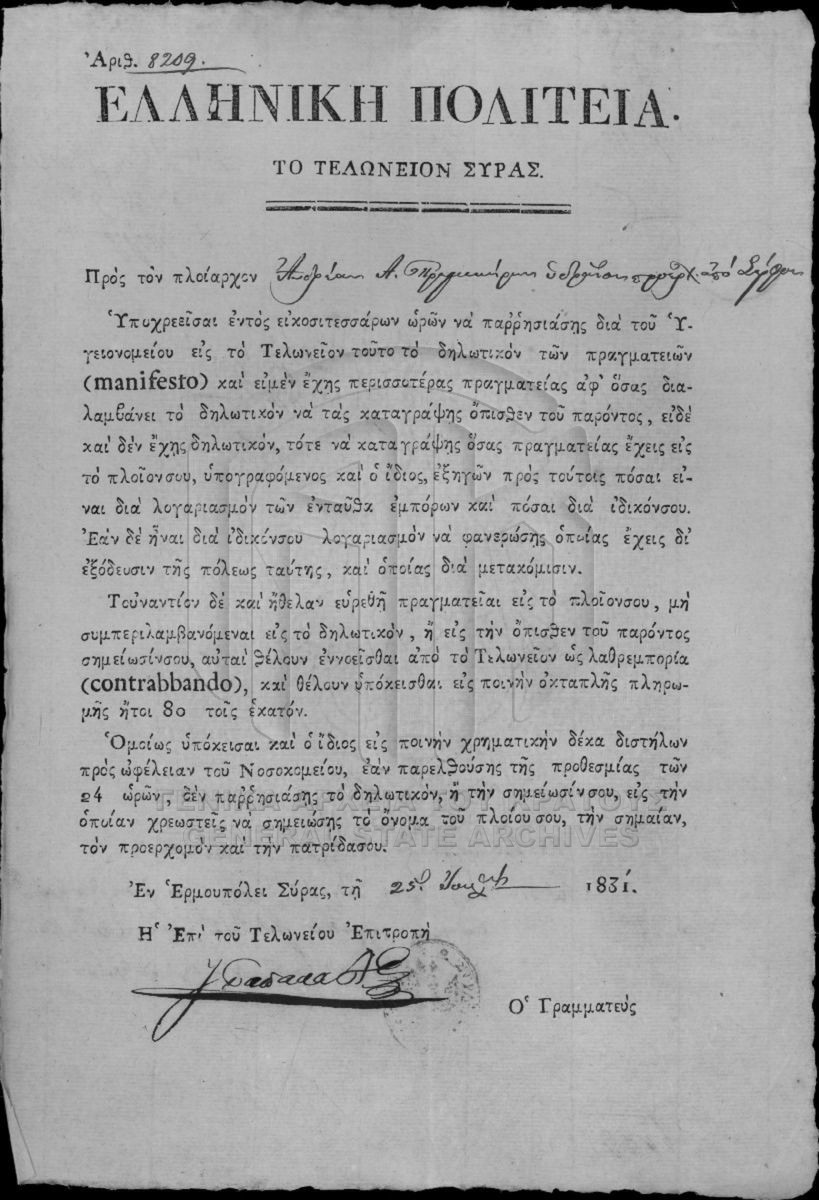 Ἀριθ. 8209.
ΕΛΛΗΝΙΚΗ ΠΟΛΙΤΕΙΑ.
ΤΟ ΤΕΛΩΝΕΙΟΝ ΣΥΡΑΣ.
Πρὸς τὸν πλοίαρχον Ἀνδρέαν Α. ἀπὸ
Ὑποχρεεῖσαι ἐντὸς εἰκοσιτεσσάρων ὡρῶν νὰ παῤῥησιάσῃς διὰ τοῦ Ὑ-
γειονομείου εἰς τὸ Τελωνεῖον τοῦτο τὸ δηλωτικὸν τῶν πραγματειῶν
(manifesto) καὶ εἰμὲν ἔχῃς περισσοτέρας πραγματείας ἀφ' ὅσας δια-
λαμβάνει τὸ δηλωτικὸν νὰ τὰς καταγράψῃς ὄπισθεν τοῦ παρόντος, εἰδὲ
καὶ δὲν ἔχῃς δηλωτικὸν, τότε νὰ καταγράψῃς ὅσας πραγματείας ἔχεις εἰς
τὸ πλοῖονσου, ὑπογραφόμενος καὶ ὁ ἴδιος, ἐξηγῶν πρὸς τούτοις πόσαι εἶ-
ναι διὰ λογαριασμὸν τῶν ἐνταῦθα ἐμπόρων καὶ πόσαι διὰ ἰδικόνσου.
Ἐὰν δὲ ἦναι διὰ ἰδικόνσου λογαριασμὸν νὰ φανερώσῃς ὁποίας ἔχεις δι'
ἐξόδευσιν τῆς πόλεως ταύτης, καὶ ὁποίας διὰ μετακόμισιν.
Τοὐναντίον δὲ καὶ ἤθελαν εὑρεθῆ πραγματεῖαι εἰς τὸ πλοῖονσου, μὴ
συμπεριλαμβανόμεναι εἰς τὸ δηλωτικὸν, ἢ εἰς τὴν ὄπισθεν τοῦ παρόντος
σημείωσίνσου, αὐταὶ θέλουν ἐννοεῖσθαι ἀπὸ τὸ Τελωνεῖον ὡς λαθρεμπορία
(contrabbando), καὶ θέλουν ὑπόκεισθαι εἰς ποινὴν ὀκταπλῆς πληρω-
μῆς ἤτοι 80 τοῖς ἑκατόν.
Ὁμοίως ὑπόκεισαι καὶ ὁ ἴδιος εἰς ποινὴν χρηματικὴν δέκα διστήλων
πρὸς ὠφέλειαν τοῦ Νοσοκομείου, ἐὰν παρελθούσης τῆς προθεσμίας τῶν
24 ὡρῶν, δὲν παῤῥησιάσῃς τὸ δηλωτικὸν, ἢ τὴν σημείωσίνσου, εἰς τὴν
ὁποίαν χρεωστεῖς νὰ σημειώσῃς τὸ ὄνομα τοῦ πλοίου σου, τὴν σημαίαν,
τὸν προερχομὸν καὶ τὴν πατρίδασου.
GENERAL STATE ARCHIVES
Ἐν Ἑρμουπόλει Σύρας, τῇ 25 1831.
Ἡ Ἐπὶ τοῦ Τελωνείου Ἐπιτροπὴ
Ὁ Γραμματεὺς